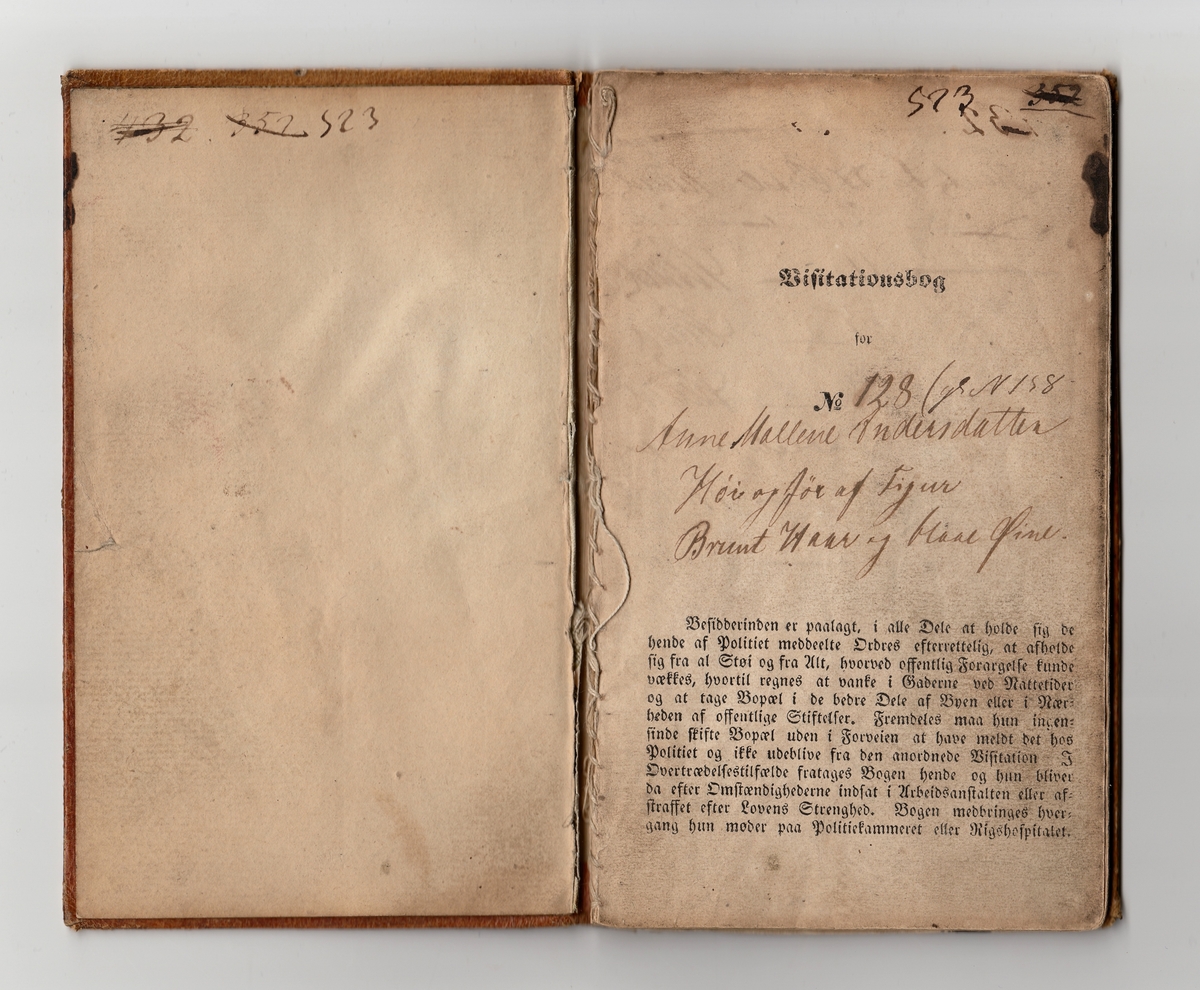 432 352 523
523 352
432
Visitationsbog
for
№ 128 (gl. N 158
Anne Mallene Andersdatter
Høi og før af Figur
Brunt Haar og blaae Øine.
Besidderinden er paalagt, i alle Dele at holde sig de
hende af Politiet meddeelte Ordres efterrettelig, at afholde
sig fra al Støi og fra Alt, hvorved offentlig Forargelse kunde
vækkes, hvortil regnes at vanke i Gaderne ved Nattetider
og at tage Bopæl i de bedre Dele af Byen eller i Nær-
heden af offentlige Stiftelser. Fremdeles maa hun ingen-
sinde skifte Bopæl uden i Forveien at have meldt det hos
Politiet og ikke udeblive fra den anordnede Visitation I
Overtrædelsestilfælde fratages Bogen hende og hun bliver
da efter Omstændighederne indsat i Arbeidsanstalten eller af-
straffet efter Lovens Strenghed. Bogen medbringes hver-
gang hun møder paa Politiekammeret eller Rigshospitalet.